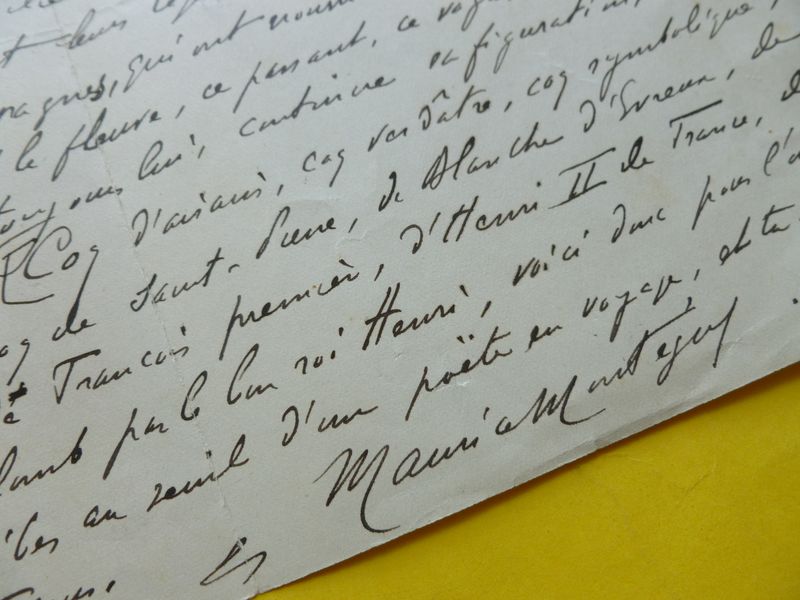 leurs
qui ont
le fleuve, ce passant, ce
toujours lui, continue sa figuration,
Coq d'airain, coq verdâtre, coq symbolique,
coq de Saint-Pierre, de Blanche d'Evreux, de
François premier, d'Henri II de France,
par le bon roi Henri, voici donc pour l'
au seuil d'un poëte en voyage, et ta
Maurice Montégut